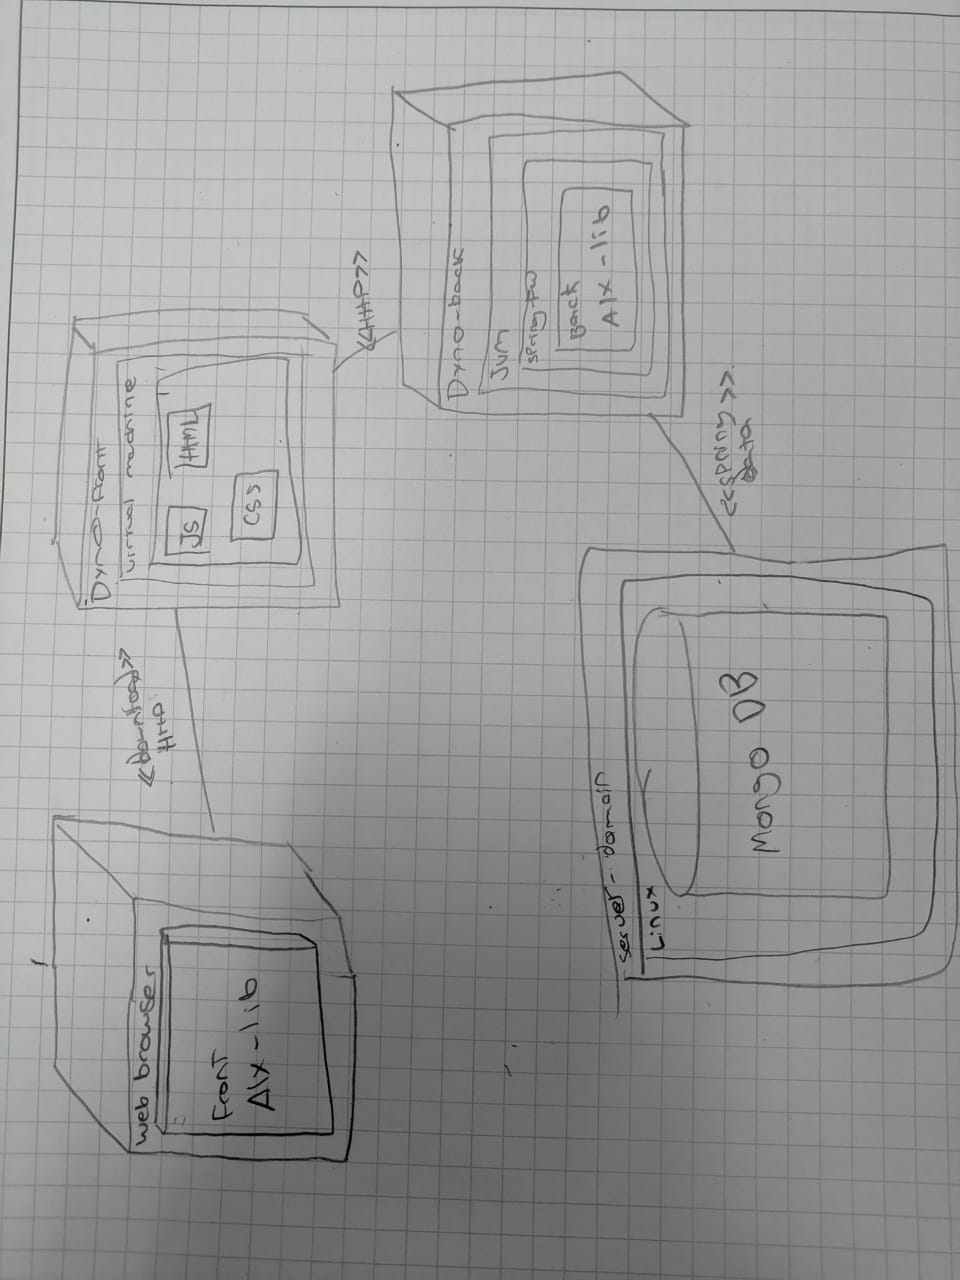 web browser
Front
Alx-lib
<<download>>
HTTP
Dyno-Front
virtual machine
JS
HTML
CSS
<<HTTP>>
Dyno-back
JVM
Spring-FW
Back
Alx-lib
<<spring>>
data
server-domain
Linux
Mongo DB